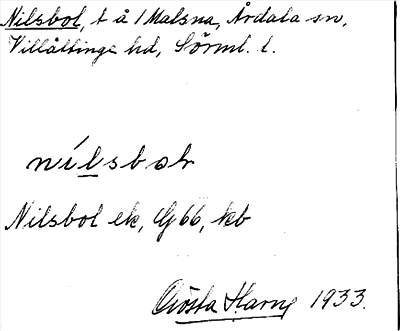 Nilsbol, t å 1 Malsna, Årdala sn,
Villåttinge hd, Sörml. l.
nílsboḷ
Nilsbol ek, G 66, kb
Gösta Harng 1933.